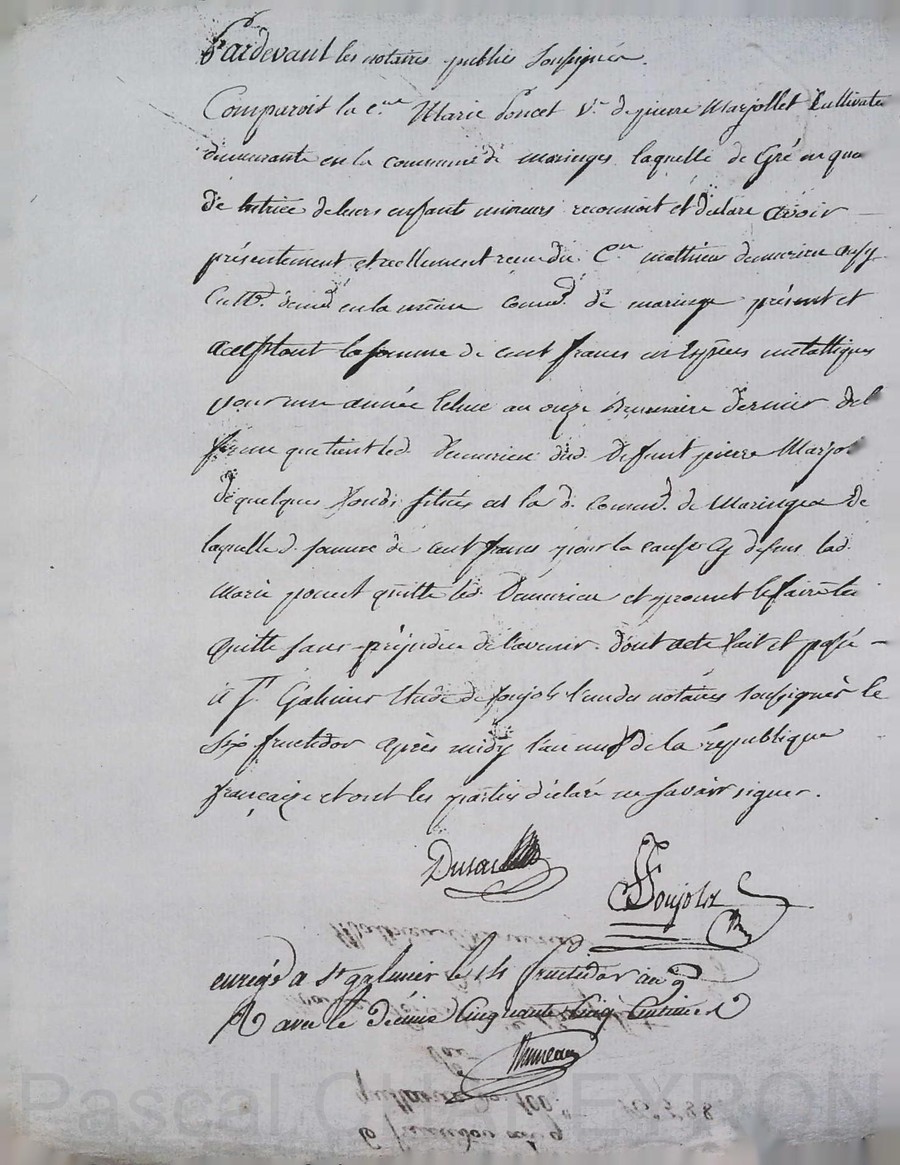 Pardevant les notaires publics soussignés.
Comparoit la c.ne Marie Poncet V.e de pierre Marjollet Cultivate
demeurante en la commune de maringes laquelle de Gré en qua
de tutrice de leurs enfants mineurs reconnoit et declare avoir
présentement et reellement receu du C.en mathieu demurieu aussy
Cult.r dem.t en la même comm.e de maringe présent et
acceptant la somme de cent francs en Espèces metalliques
pour une année échue au onze Brumaire dernier del
ferme que tient led. demurieu dud. deffunt pierre Marjol
de quelques fonds situés en la d. comm.e de Maringes de
laquelle d. somme de cent francs pour la cause cy dessus lad.
Marie poncet quitte led. Demurieu et promet le faire te
quitte sans préjudice de l'avenir. dont acte fait et passé
à S.t Galmier Etude de Soujols l'un des notaires soussignés le
six fructidor après midy l'an neuf de la république
française et ont les parties déclaré ne savoir signer.
Soujols
enregé a St galmier le 14 fructidor an 9
R avec le décime Cinquante Cinq Centimes
quittance de 100
6 fructidor an 9
Pascal CHAMBEYRON